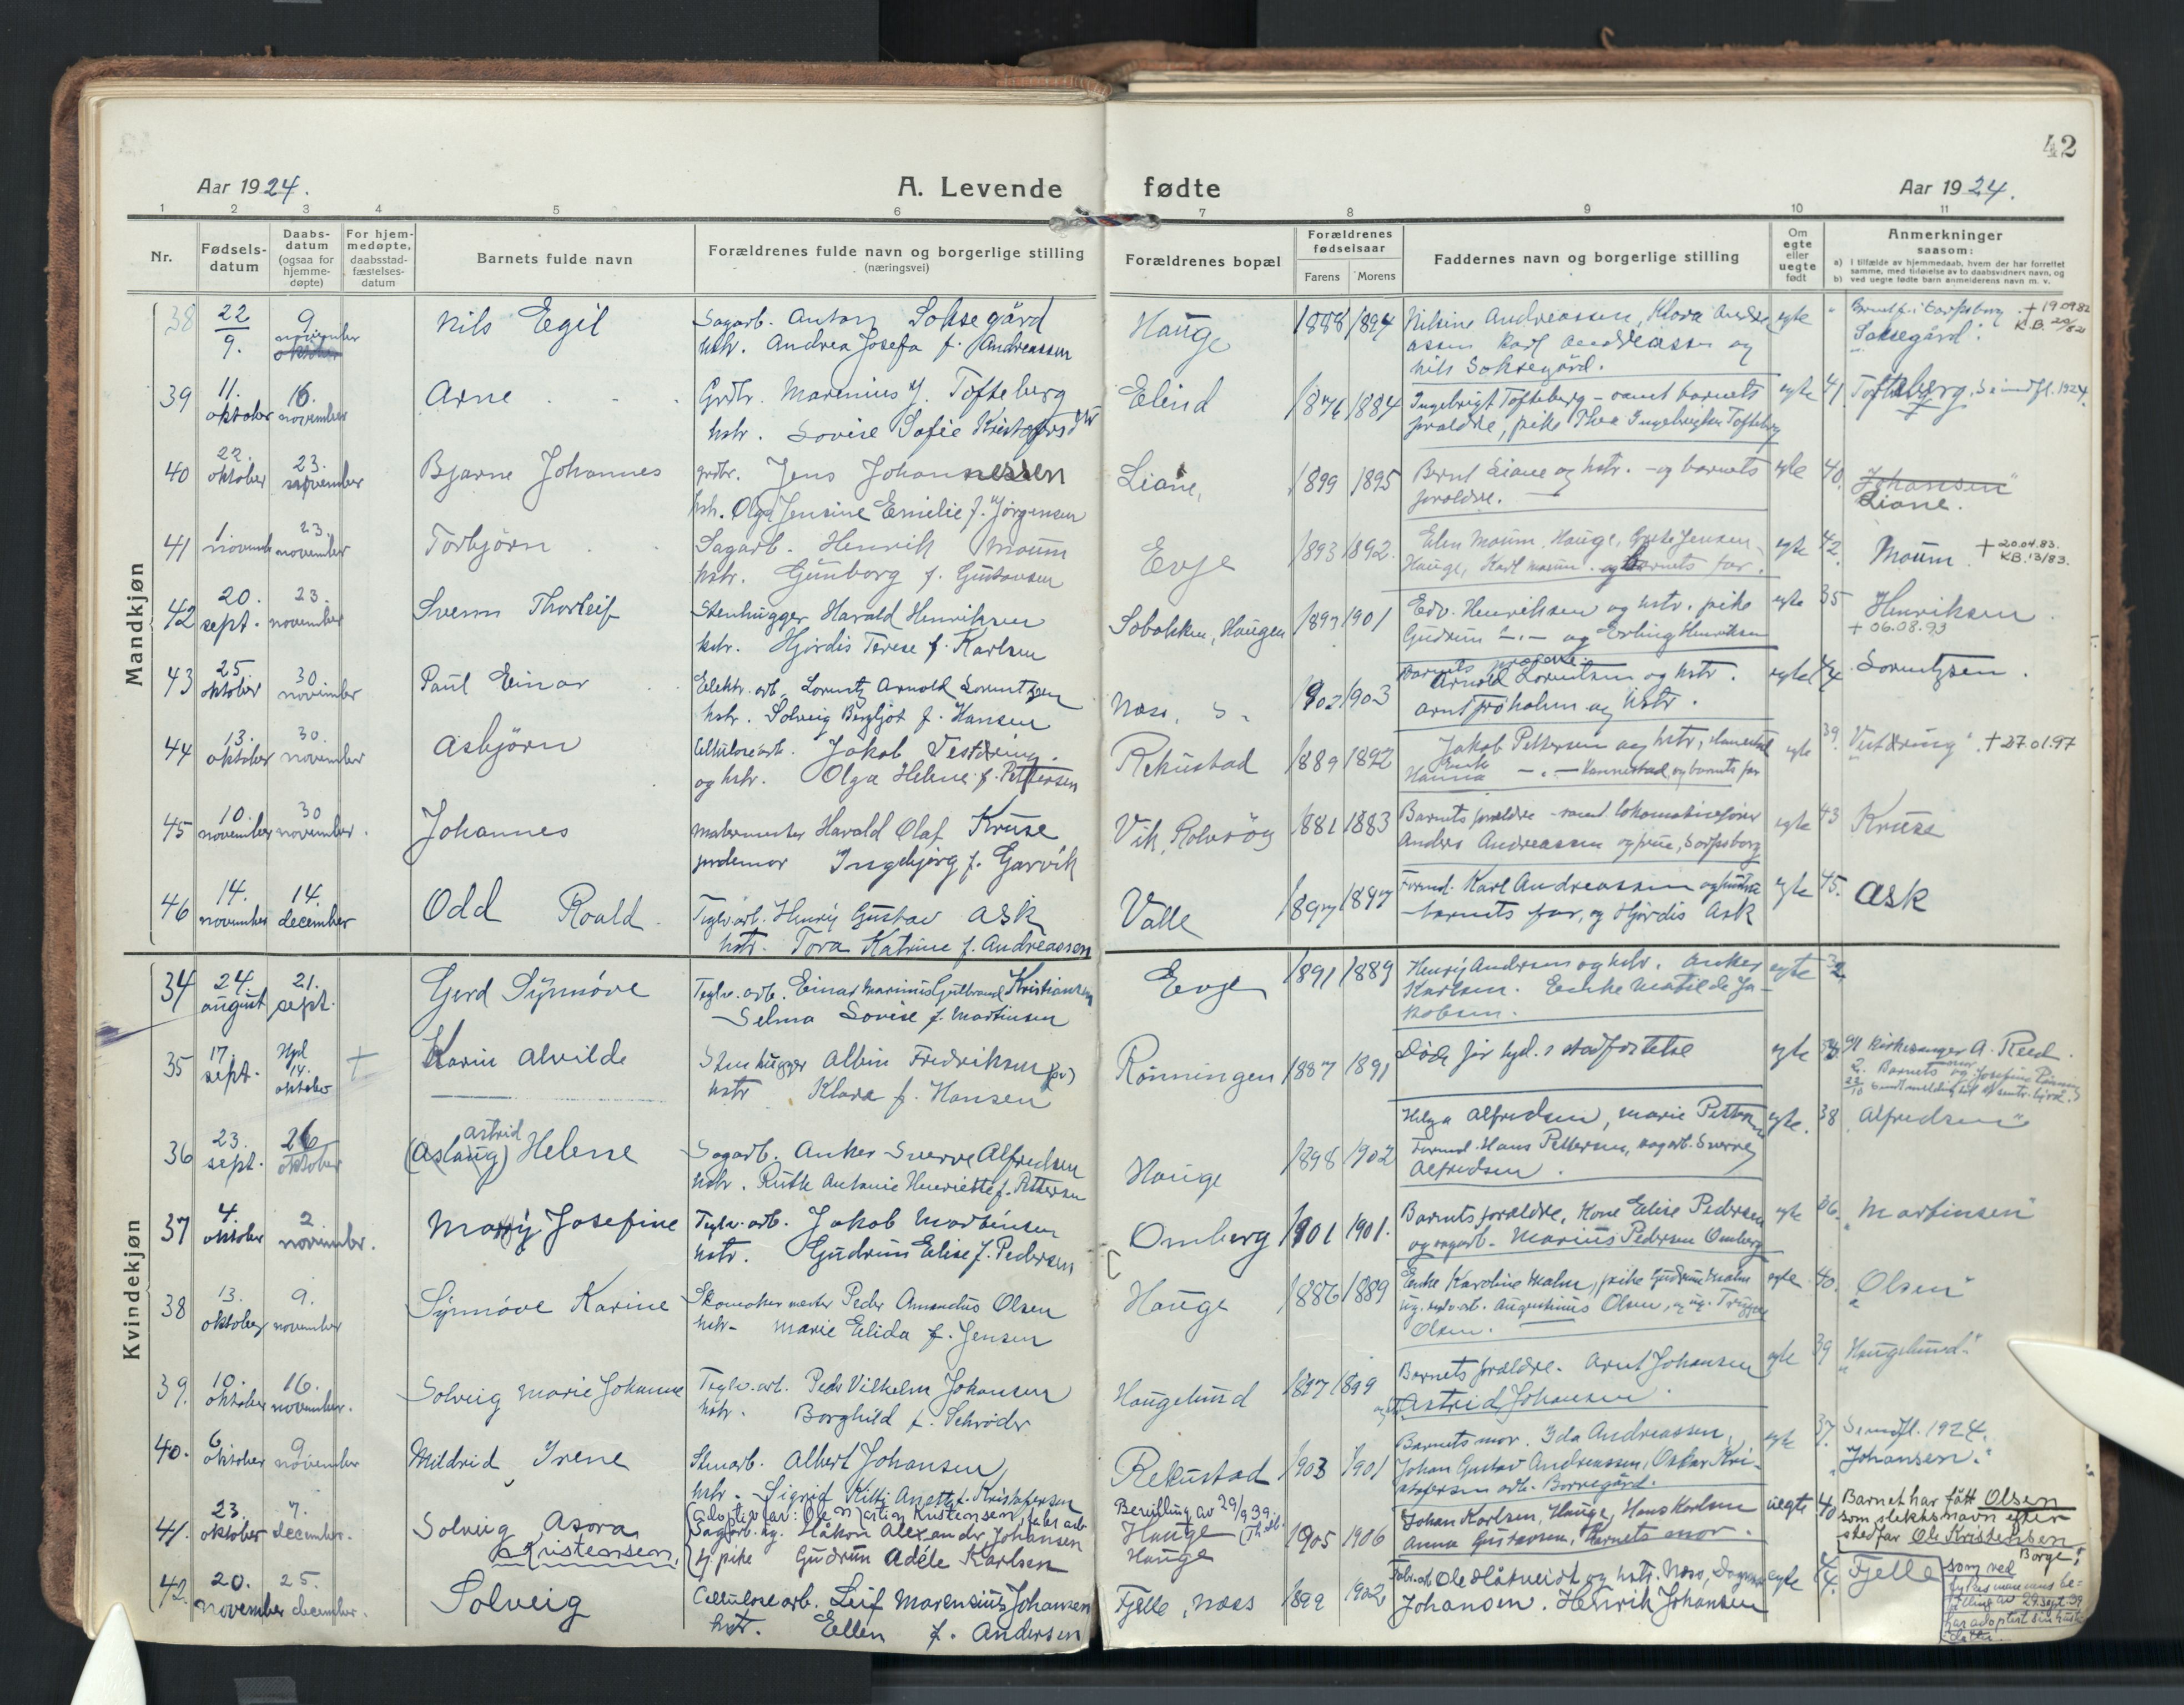 42
Aar 1924.
A. Levende fødte
Aar 1924.
1 2 3 4 5 6 7 8 9 10 11
Nr.
Fødsels-
datum
Daabs-
datum
(ogsaa for
hjemme-
døpte)
For hjem-
medøpte,
daabsstad-
fæstelses-
datum
Barnets fulde navn
Forældrenes fulde navn og borgerlige stilling
(næringsvei)
Forældrenes bopæl
Forældrenes
fødselsaar
Farens Morens
Faddernes navn og borgerlige stilling
Om
egte
eller
uegte
født
Anmerkninger
saasom:
a) I tilfælde av hjemmedaab, hvem der har forrettet
samme, med tilføielse av to daabsvidners navn, og
b) ved uegte fødte barn anmelderens navn m. v.
Mandkjøn
38
22
9.
9
november
oktober
Nils Egil
Sagarb. Anton Soksegård
hstr. Andrea Josefa f. Andreassen
Hauge
1888 1894
Nilsine Andreassen, Klara Andre
assen Karl Andreassen og
Nils Soksegård.
egte
+ 19.09.82
K.B.
"Soksegård".
39
11.
oktober
16.
november
Arne
Grdbr. Marenius J. Tofteberg
hstr. Lovise Sofie Kristofersdtr
Elind
1876 1884
Ingebrigt Tofteberg - samt barnets
foraldre, pike Thea Ingebrigtsen Tofteberg
egte
41.
Tofteberg, 1924.
40
22.
oktober
23.
november
Bjarne Johannes
grdbr. Jens Johannessen
hstr. Olga Jensine Emilie f. Jørgensen
Liane,
1899 1895
Bernt Liane og hstr. - og barnets
foraldre.
egte
40.
Johansen"
Liane.
41
1
novemb
23.
november
Torbjørn
Sagarb. Henrik Moum
hstr. Gunborg f. Gustavsen
Evje
1893 1892.
Elen Moum, Hauge, Grete Jensen,
Hauge, Karl Moum. og barnets far.
egte
42.
Moum
+ 20.04.83.
KB.13/83.
42
20.
sept.
23.
november
Svenn Thorleif
Stenhugger Harald Henriksen
hstr. Hjørdis Terese f. Karlsen
Sobakken, Haugen
1897 1901
Edv. Henriksen og hstr. pike
Gudrun -"- og Erling Henriksen
egte
35
Henriksen.
+ 06.08.93
43
25.
oktober
30
november
Paul Einar
Elektr. arb. Lorentz Arnold Lorentzen
hstr. Solveig Bergljot f. Hansen
Næss,
1902 1903
Barnets foraldre.
Arnold Lorentzen og hstr.
Arnt Froholm og hstr.
egte
44
Lorentzsen.
44
13.
oktober
30.
november
Asbjørn
Cellulosearb. Jakob Vestæring
og hstr. Olga Helene f. Pettersen
Rekustad
1889 1892
Jakob Pettersen og hstr,
Enke
Hanna -"- Kannestad, og barnets far
egte
39.
"Vestæring". + 27.01.97
45
10.
november
30
november.
Johannes
malermester Harald Olaf Kruse
jordemor Ingebjørg f. Garvik
Vik, Rolvsøy
1881 1883
Barnets foraldre - samt lokomotivfører
Anders Andreassen og frue, Sarpsborg
egte
43
Kruse
46
14.
november
14.
december
Odd Roald.
Teglv. arb. Henry Gustav Ask
hstr. Tora Katrine f. Andreassen
Valle
1897 1897
Formd. Karl Andreassen og hustru
- barnets far, og Hjørdis Ask
egte
45.
Ask
Kvindekjøn
34
24.
august
21.
sept.
Gerd Synnøve
Teglv. arb. Einar Marinius Gulbrand Kristiansen
- Selma Lovise f. Martinsen
Evje
1891 1889
Henry Andersen og hstr. Anker
Karlsen. Enke Matilde Ja-
kobsen.
egte
35
17.
sept.
Hjd
14.
oktober
+
Karin Alvilde
Stenhugger Albin Fredriksen
hstr Klara f. Hansen
Rønningen
1887 1891
Døde før tyd. i stadfæstelse
egte
Kirkesanger A. Reed.
2. Barnets mor og Josefine Rønning
36
23.
sept.
26
oktober
astrid
(Aslaug) Helene
Sagarb. Anker Sverre Alfredsen
hstr. Ruth Antonie Henriette f. Pettersen
Hauge
1898 1902
Helga Alfredsen, Marie Pettersen
Formd. Hans Pettersen, sagarb. Sverre
Alfredsen.
egte.
38
"Alfredsen"
37
4.
oktober
2.
november.
Mary Josefine
Teglv. arb. Jakob Martinsen
hstr. Gudrun Elise f. Pedersen
Omberg
1901 1901.
Barnets foraldre, Kone Elise Pedersen
og sagarb. Marius Pedersen Omberg
egte
36.
"Martinsen"
38
13.
oktober
9.
november
Synnøve Karine
Skomakermester Peder Amandus Olsen
hstr - Marie Elida f. Jensen
Hauge
1886 1889
Enke Karoline Malm, pike Gudrun Malm
ug. Augustinius Olsen, og ug. Trygve
Olsen.
egte
40.
"Olsen"
39.
10.
oktober
16.
november.
Solveig Marie Johanne
Teglv. arb. Peder Vilhelm Johansen
hstr. Borghild f. Schrøder
Haugelund
1897 1899
Barnets foraldre. Arnt Johansen
og Astrid Johansen.
egte
39
"Haugelund".
40.
6
oktober
9
november
Mildrid Irene
Stenarb. Albert Johansen
hstr. Sigrid Kitti Anette f. Kristofersen
Rekustad
1903 1901
Barnets mor. Ida Andreassen,
Johan Gustav Andreassen, Oskar Kri-
stofersen adr. Borregård.
egte
37.
1924.
"Johansen".
41.
23.
oktober
7.
december.
Solveig Asora
Kristensen,
(Adoptiv far: Ole Martin Kristensen, fabr. arb
Sagarb. ug. Håkon Alexander Johansen
tj. pike Gudrun Adéle Karlsen
Bevilling av 29/9 39.
Hauge
Hauge
1905 1906
Johan Karlsen, Hauge, Hans Karlsen
Anna Gustavsen, Barnets mor.
uegte
40
Barnet har fått Olsen
som slektsnavn efter
stedfar Ole Kristensen
Borge,
som ved
bevilling av 29. sept. 39
har adoptert sin hustr.
datter.
42.
20.
november
25.
december.
Solveig
Cellulosearb. Leif Marensius Johansen
hstr. Ellen f. Andersen
Fjelle, Næss
1899 1902
Fabr. arb Ole Håkneidt og hstr. Næss, Dagmar
Johansen. Henrik Johansen
egte
44.
Fjelle